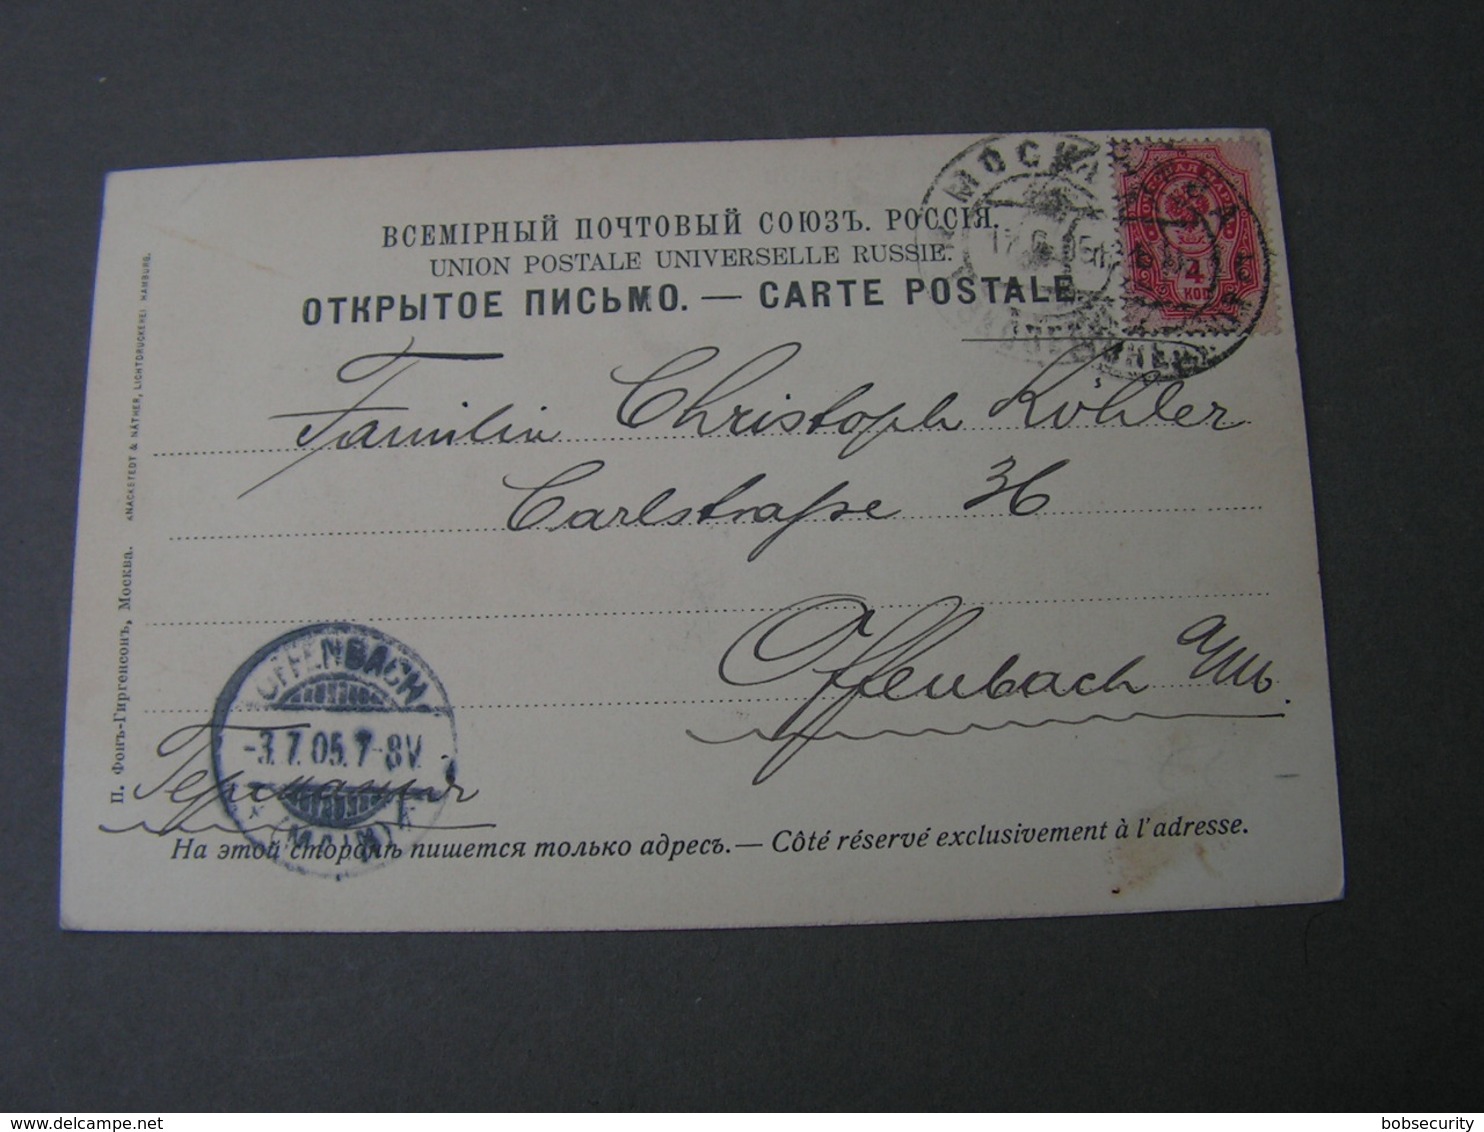 ВСЕМІРНЫЙ ПОЧТОВЫЙ СОЮЗЪ. РОССІЯ.
UNION POSTALE UNIVERSELLE RUSSIE.
ОТКРЫТОЕ ПИСЬМО. — CARTE POSTALE
МОСКВА
4
КОП
Familie Christoph Kohler
Carlstraße 36
Offenbach a/M.
Германія
OFFENBACH
-3.7.05.7-8V.
* (MAIN) *
На этой сторонѣ пишется только адресъ. — Côté réservé exclusivement à l'adresse.
П. Фонъ-Гиргенсонъ, Москва. KNACKSTEDT & NÄTHER, LICHTDRUCKEREI HAMBURG.
bobsecurity